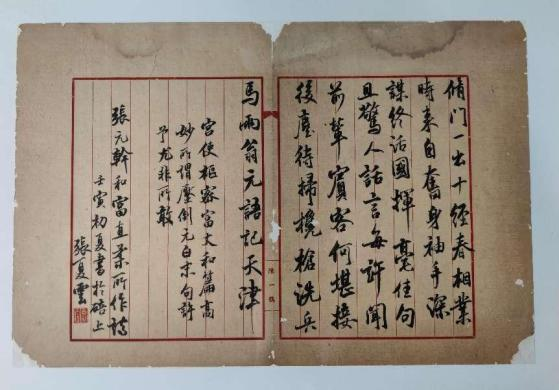 脩门一出十經春相業
時来自奮身袖手深
謀終活國揮毫佳句
且驚人話言每許聞
前輩賓客何堪接
後塵待掃欃槍洗兵
馬兩翁无語記天津
宫使樞密富丈和篇高
妙所谓壓倒元白末句許
予尤非所敢
張元幹和富直柔所作詩
壬寅初夏書於碚上
張夏雲